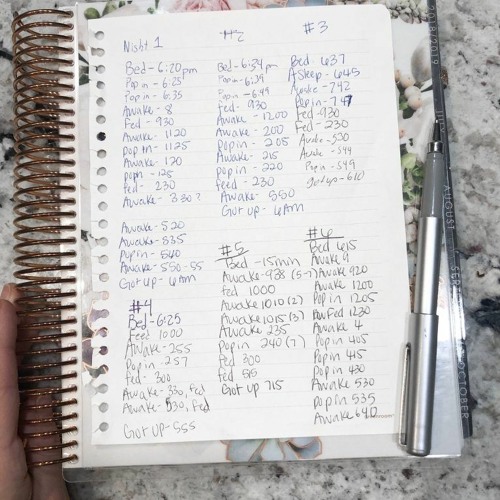 Night 1
Bed - 6:20pm
Pop in - 6:25
Pop in - 6:35
Awake - 8
Fed - 930
Awake - 1120
Pop in - 1125
Awake - 120
pop in - 125
fed - 230
Awake - 330?
Awake - 520
Awake - 535
Pop in - 540
Awake - 550-55
Got up - 6am
#2
Bed - 6:34pm
Pop in - 6:39
Pop in - 6:49
fed - 930
Awake - 1200
Awake - 200
pop in - 205
Awake - 215
pop in - 220
feed - 230
Awake - 550
Got up - 6am
#3
Bed - 637
Asleep - 645
Awake - 742
Pop in - 747
Fed - 930
Fed - 230
Awake - 520
Awake - 544
Pop in - 549
got up - 610
#4
Bed - 6:25
Feed 1000
Awake - 255
Pop in - 257
fed - 300
Awake - 330, fed
Awake - 530, Fed
Got up - 555
#5
Bed - 15min
Awake - 938 (5-7)
fed 1000
Awake 1010 (2)
Awake 1015 (3)
Awake 235
Popin 240 (7)
Fed 300
fed 515
Got up 715
#6
Bed 615
Awake 9
Awake 920
Awake 1200
Pop in 1205
Fed 1230
Awake 4
Pop in 405
Pop in 415
Pop in 430
Awake 530
pop in 535
Awake 640
2018/2019
AUGUST
OCTOBER